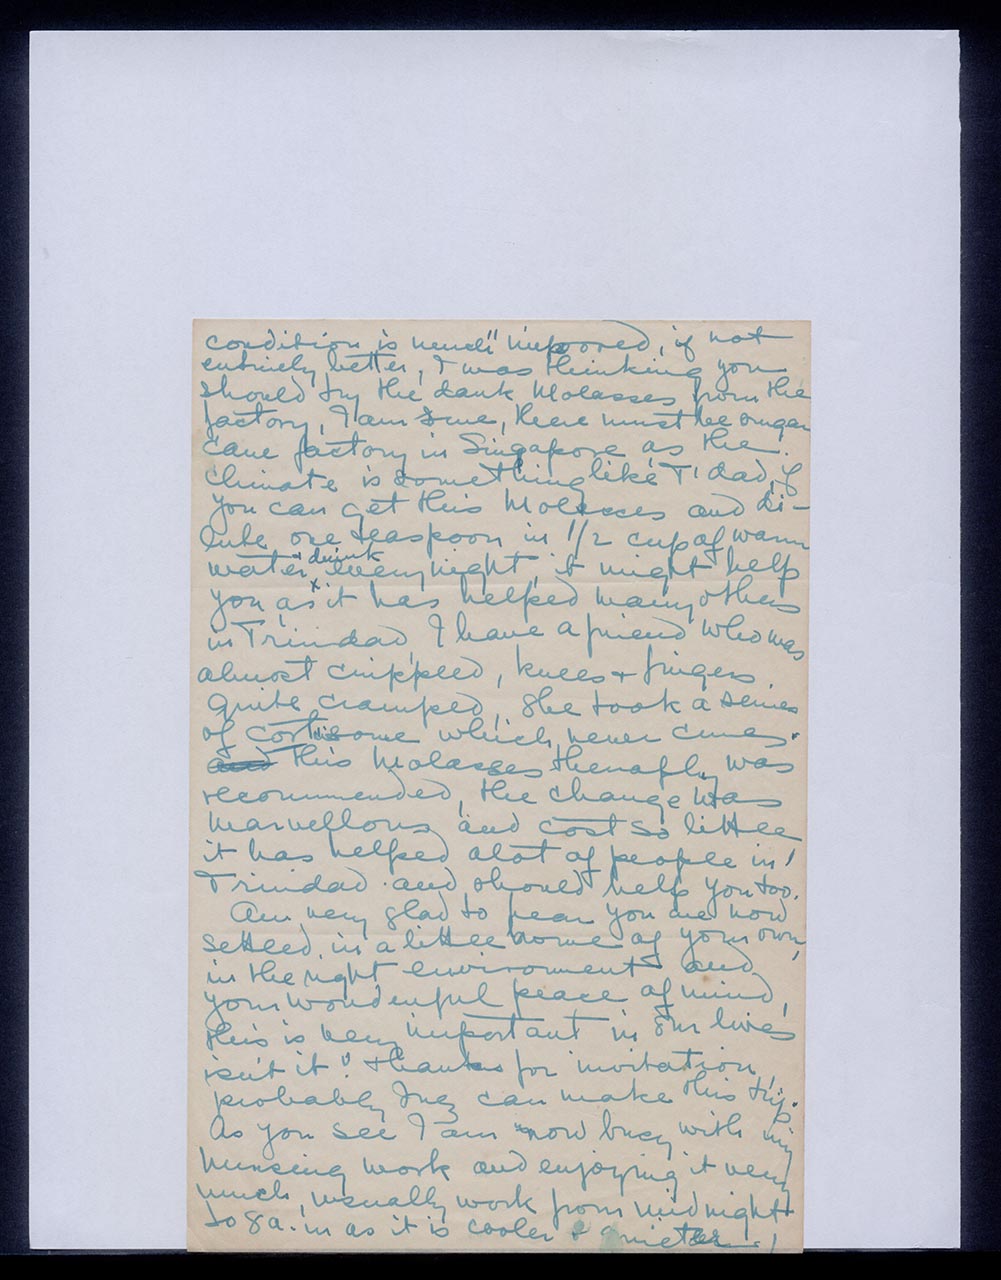 condition is much improved, if not
entirely better, I was thinking you
should try the dark Molasses from the
factory, I am sure, there must be sugar
cane factory in Singapore as the
climate is something like T'dad, if
you can get this Molasses and di-
lute one teaspoon in 1/2 cup of warm
water, & drink every night, it might help
you, as it has helped many others
in Trinidad, I have a friend who was
almost crippled, knees + fingers
quite cramped, she took a series
of cortisone which never cures.
and this Molasses was
recommended, the change was
marvellous and cost so little
it has helped alot of people in
Trinidad and should help you too.
Am very glad to hear you are now
settled in a little home of your own,
in the right enviroment and
your wonderful peace of mind,
this is very important in our lives
isn't it! thanks for invitation,
probably Inez can make this trip.
As you see I am now busy with my
nursing work and enjoying it very
much, usually work from midnight
to 8 a.m as it is cooler & quieter!